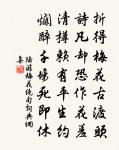 折得梅花古渡頭
詩凡却恐作花羞
清樽賴有平生約
爛醉千場死即休
陸游梅花絕句詞典網
集